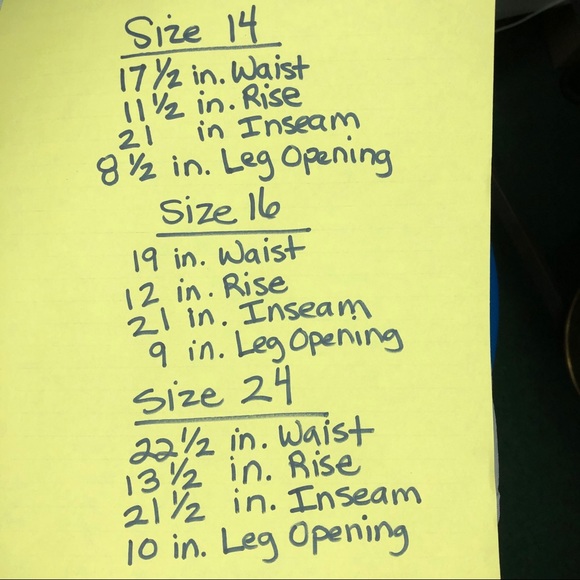 Size 14
17 1/2 in. Waist
11 1/2 in. Rise
21 in Inseam
8 1/2 in. Leg Opening
Size 16
19 in. Waist
12 in. Rise
21 in. Inseam
9 in. Leg Opening
Size 24
22 1/2 in. Waist
13 1/2 in. Rise
21 1/2 in. Inseam
10 in. Leg Opening